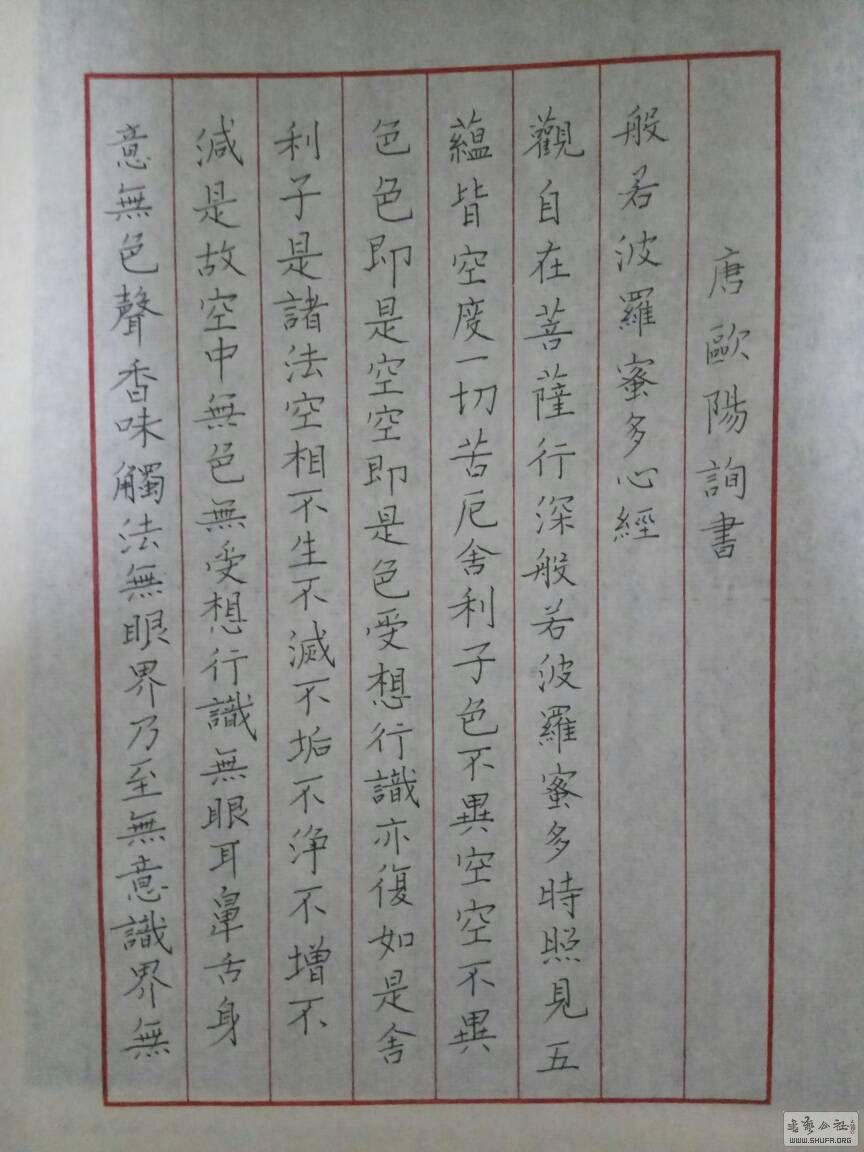 唐歐陽詢書
般若波羅蜜多心經
觀自在菩薩行深般若波羅蜜多時照見五
蘊皆空度一切苦厄舍利子色不異空空不異
色色即是空空即是色受想行識亦復如是舍
利子是諸法空相不生不滅不垢不淨不增不
減是故空中無色無受想行識無眼耳鼻舌身
意無色聲香味觸法無眼界乃至無意識界無
书艺公社
WWW.SHUFA.ORG